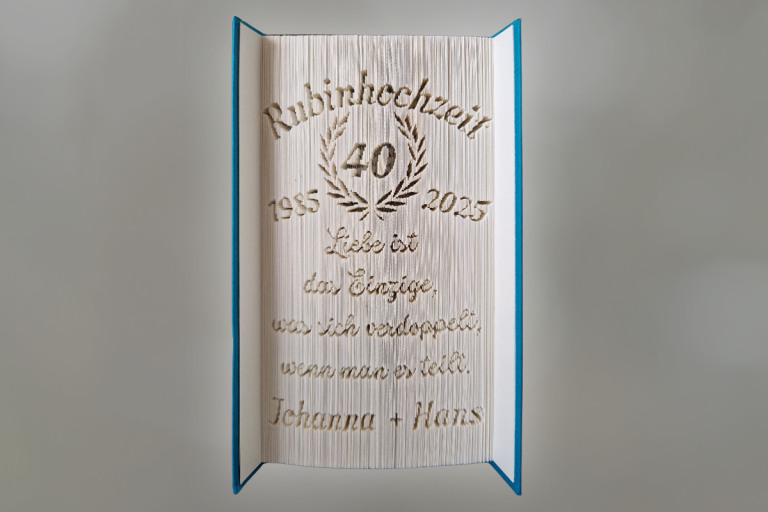 Rubinhochzeit
40
1985 2025
Liebe ist
das Einzige,
was sich verdoppelt,
wenn man es teilt.
Johanna + Hans